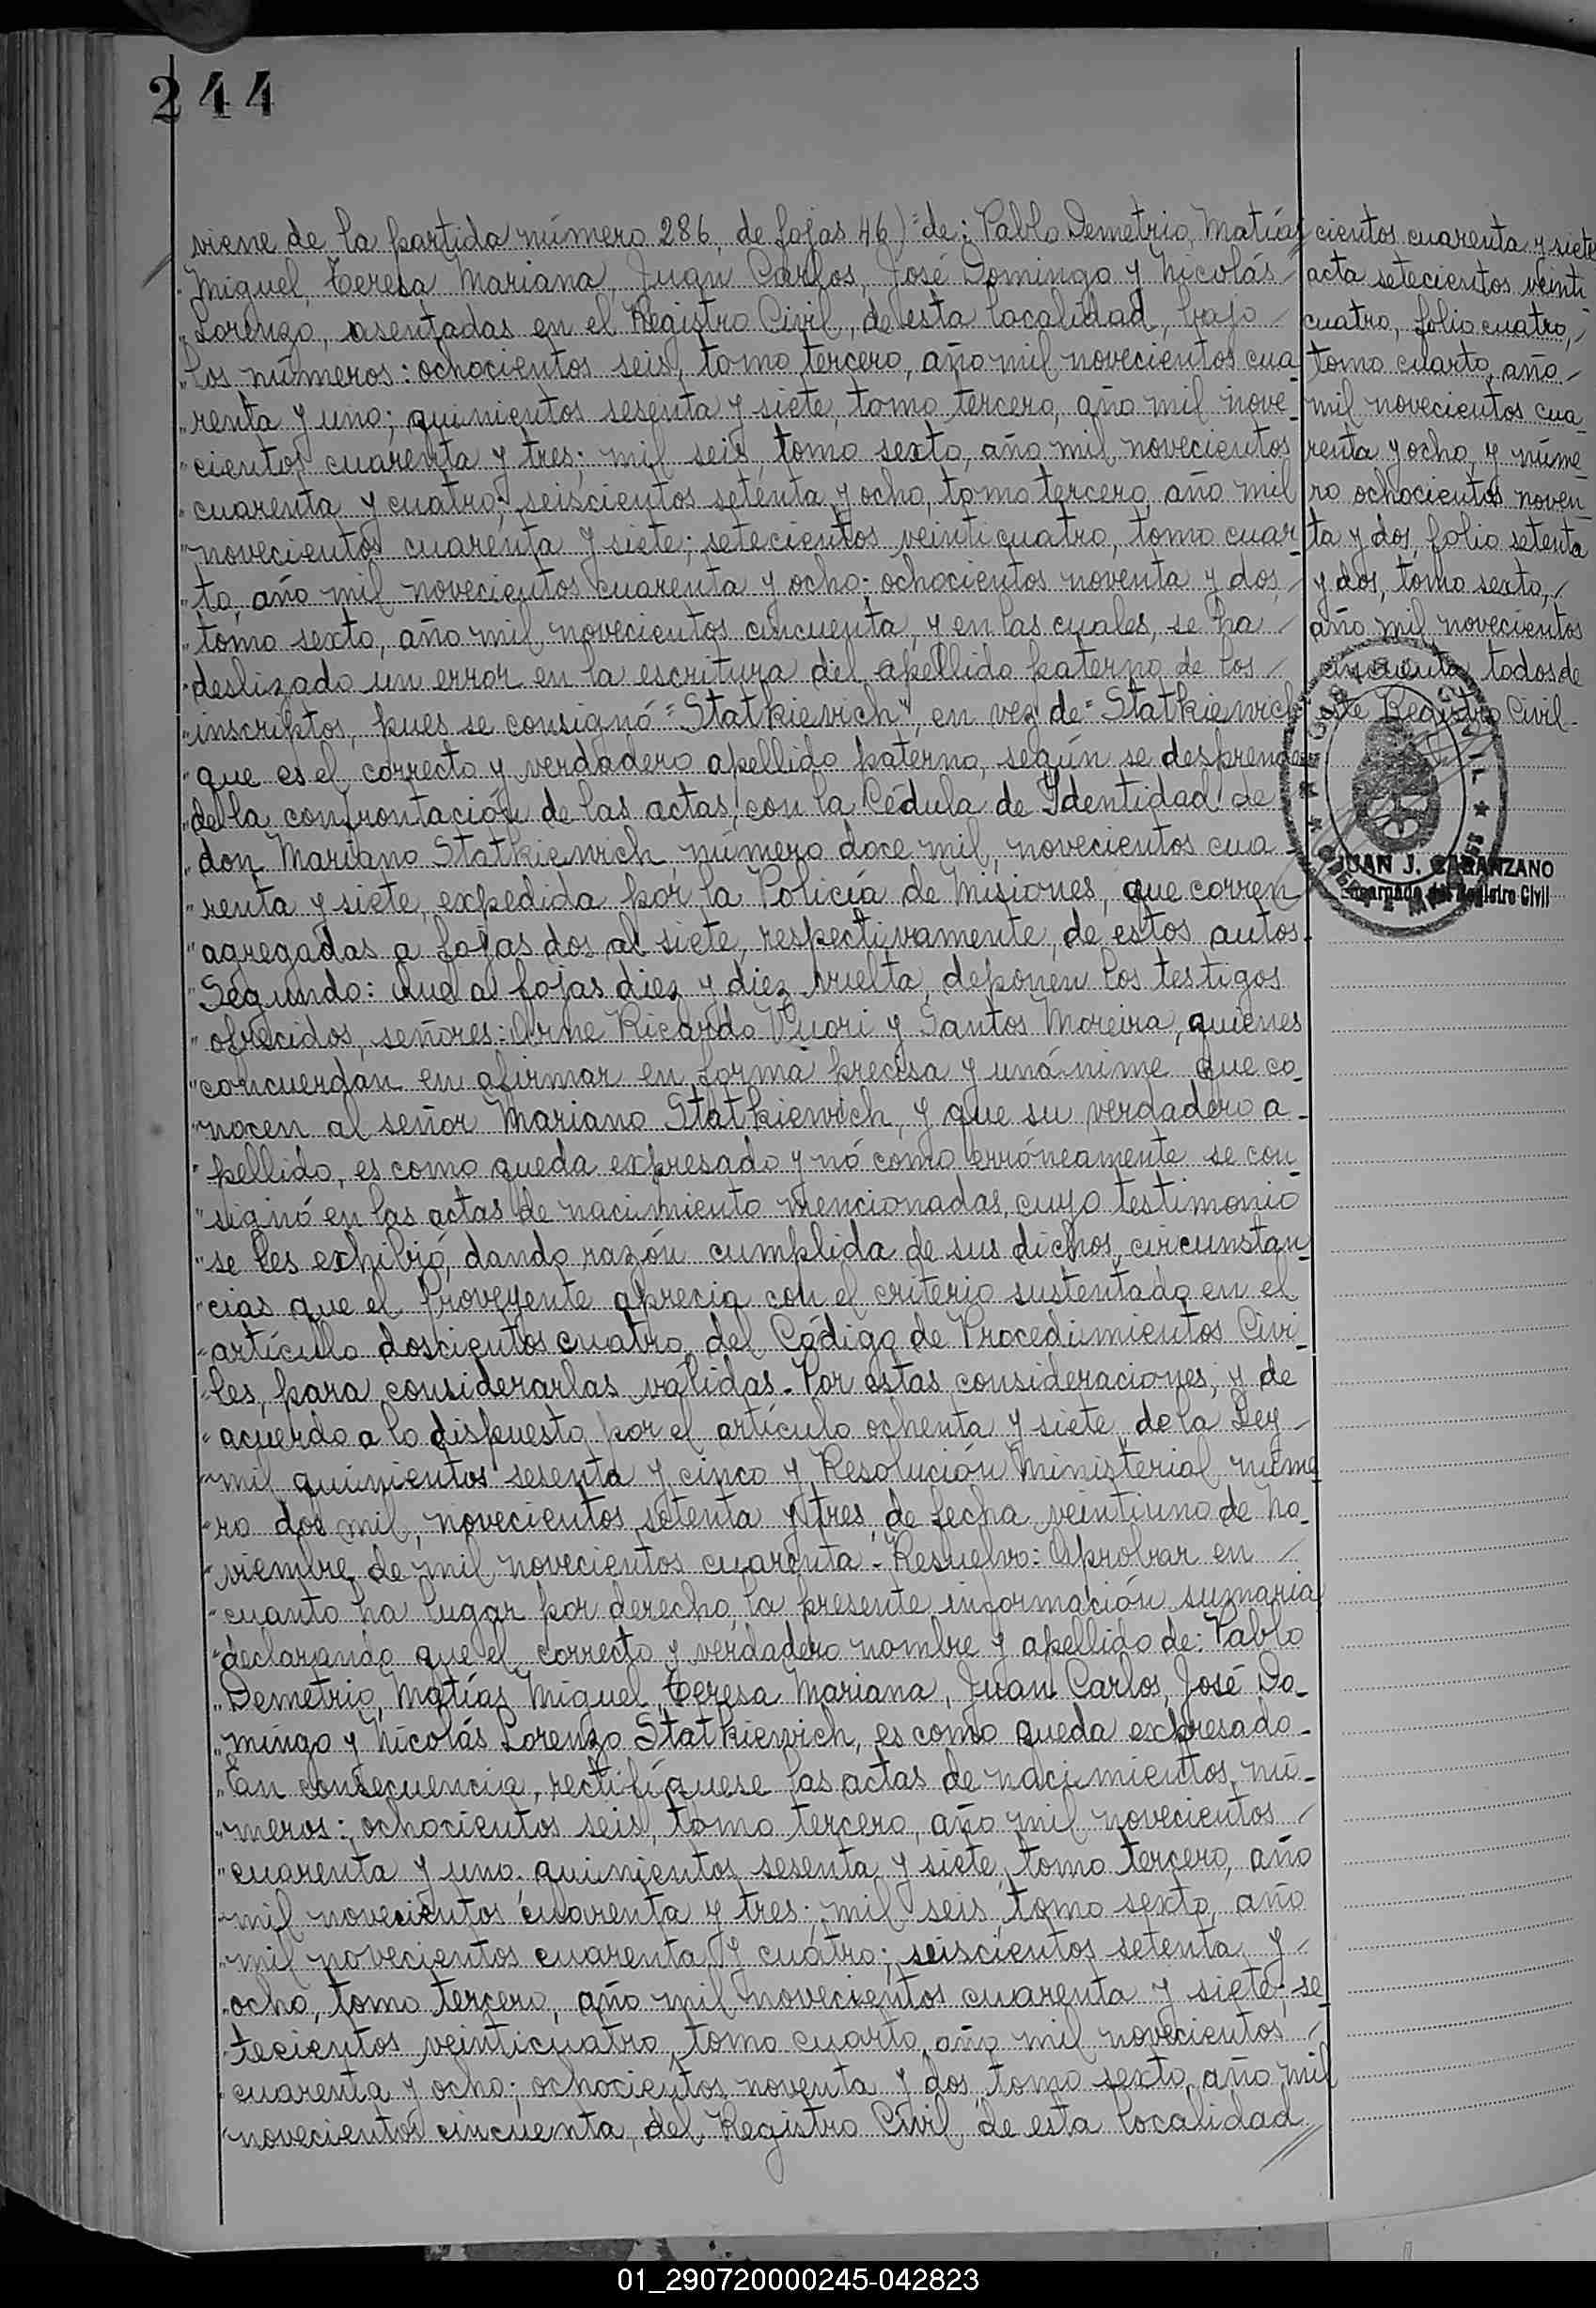 244
viene de la partida número 286, de fojas 46)"de: Pablo Demetrio, Matías
Miguel, Teresa Mariana, Juan Carlos, José Domingo y Nicolás
Lorenzo, asentadas en el Registro Civil, de esta localidad, bajo
los números: ochocientos seis, tomo tercero, año mil novecientos cua-
renta y uno; quinientos sesenta y siete, tomo tercero, año mil nove-
cientos cuarenta y tres; mil seis, tomo sexto, año mil novecientos
cuarenta y cuatro; seiscientos setenta y ocho, tomo tercero, año mil
novecientos cuarenta y siete; setecientos veinticuatro, tomo cuar-
to, año mil novecientos cuarenta y ocho; ochocientos noventa y dos,
tomo sexto, año mil novecientos cincuenta, y en las cuales, se ha
deslizado un error en la escritura del apellido paterno de los
inscriptos, pues se consignó "Statkievich", en vez de "Statkiewich
que es el correcto y verdadero apellido paterno, según se desprende
de la confrontación de las actas, con la Cédula de Ydentidad de
don Mariano Statkiewich, número doce mil, novecientos cua-
renta y siete, expedida por la Policía de Misiones, que corren
agregadas a fojas dos al siete, respectivamente, de estos autos.
Segundo: Que a fojas diez y diez vuelta, deponen los testigos
ofrecidos, señores: Arne Ricardo Vuori y Santos Moreira, quienes
concuerdan en afirmar en forma precisa y unánime que co-
nocen al señor Mariano Statkiewich, y que su verdadero a-
pellido, es como queda expresado y nó como erróneamente se con
signó en las actas de nacimiento mencionadas, cuyo testimonio
se les exhibió, dando razón cumplida de sus dichos, circunstan-
cias que el Proveyente aprecia con el criterio sustentado en el
artículo doscientos cuatro del Código de Procedimientos Civi-
les, para considerarlas válidas.- Por estas consideraciones, y de
acuerdo a lo dispuesto por el artículo ochenta y siete, de la Ley
mil quinientos sesenta y cinco y Resolución Ministerial núme
ro dos mil, novecientos setenta y tres, de fecha veintiuno de No-
viembre de mil novecientos cuarenta.- Resuelvo: Aprobar en
cuanto ha lugar por derecho, la presente información sumaria
declarando que el correcto y verdadero nombre y apellido de: Pablo
Demetrio, Matías Miguel, Teresa Mariana, Juan Carlos, José Do-
mingo y Nicolás Lorenzo Statkiewich, es como queda expresado.-
En consecuencia, rectifíquese las actas de nacimientos nú-
meros: ochocientos seis, tomo tercero, año mil novecientos
cuarenta y uno. quinientos sesenta y siete, tomo tercero, año
mil novecientos cuarenta y tres; mil seis, tomo sexto, año
mil novecientos cuarenta y cuatro; seiscientos setenta y
ocho, tomo tercero, año mil novecientos cuarenta y siete; se-
tecientos veinticuatro, tomo cuarto, año mil novecientos
cuarenta y ocho; ochocientos noventa y dos, tomo sexto, año mil
novecientos cincuenta, del Registro Civil de esta localidad
cientos cuarenta y siete
acta setecientos veinti
cuatro, folio cuatro,
tomo cuarto, año
mil novecientos cua-
renta y ocho, y núme
ro ochocientos noven-
ta y dos, folio setenta
y dos, tomo sexto,
año mil novecientos
cincuenta, todos de
este Registro Civil-
JUAN J. CABANZANO
Encargado del Registro Civil
01_290720000245-042823